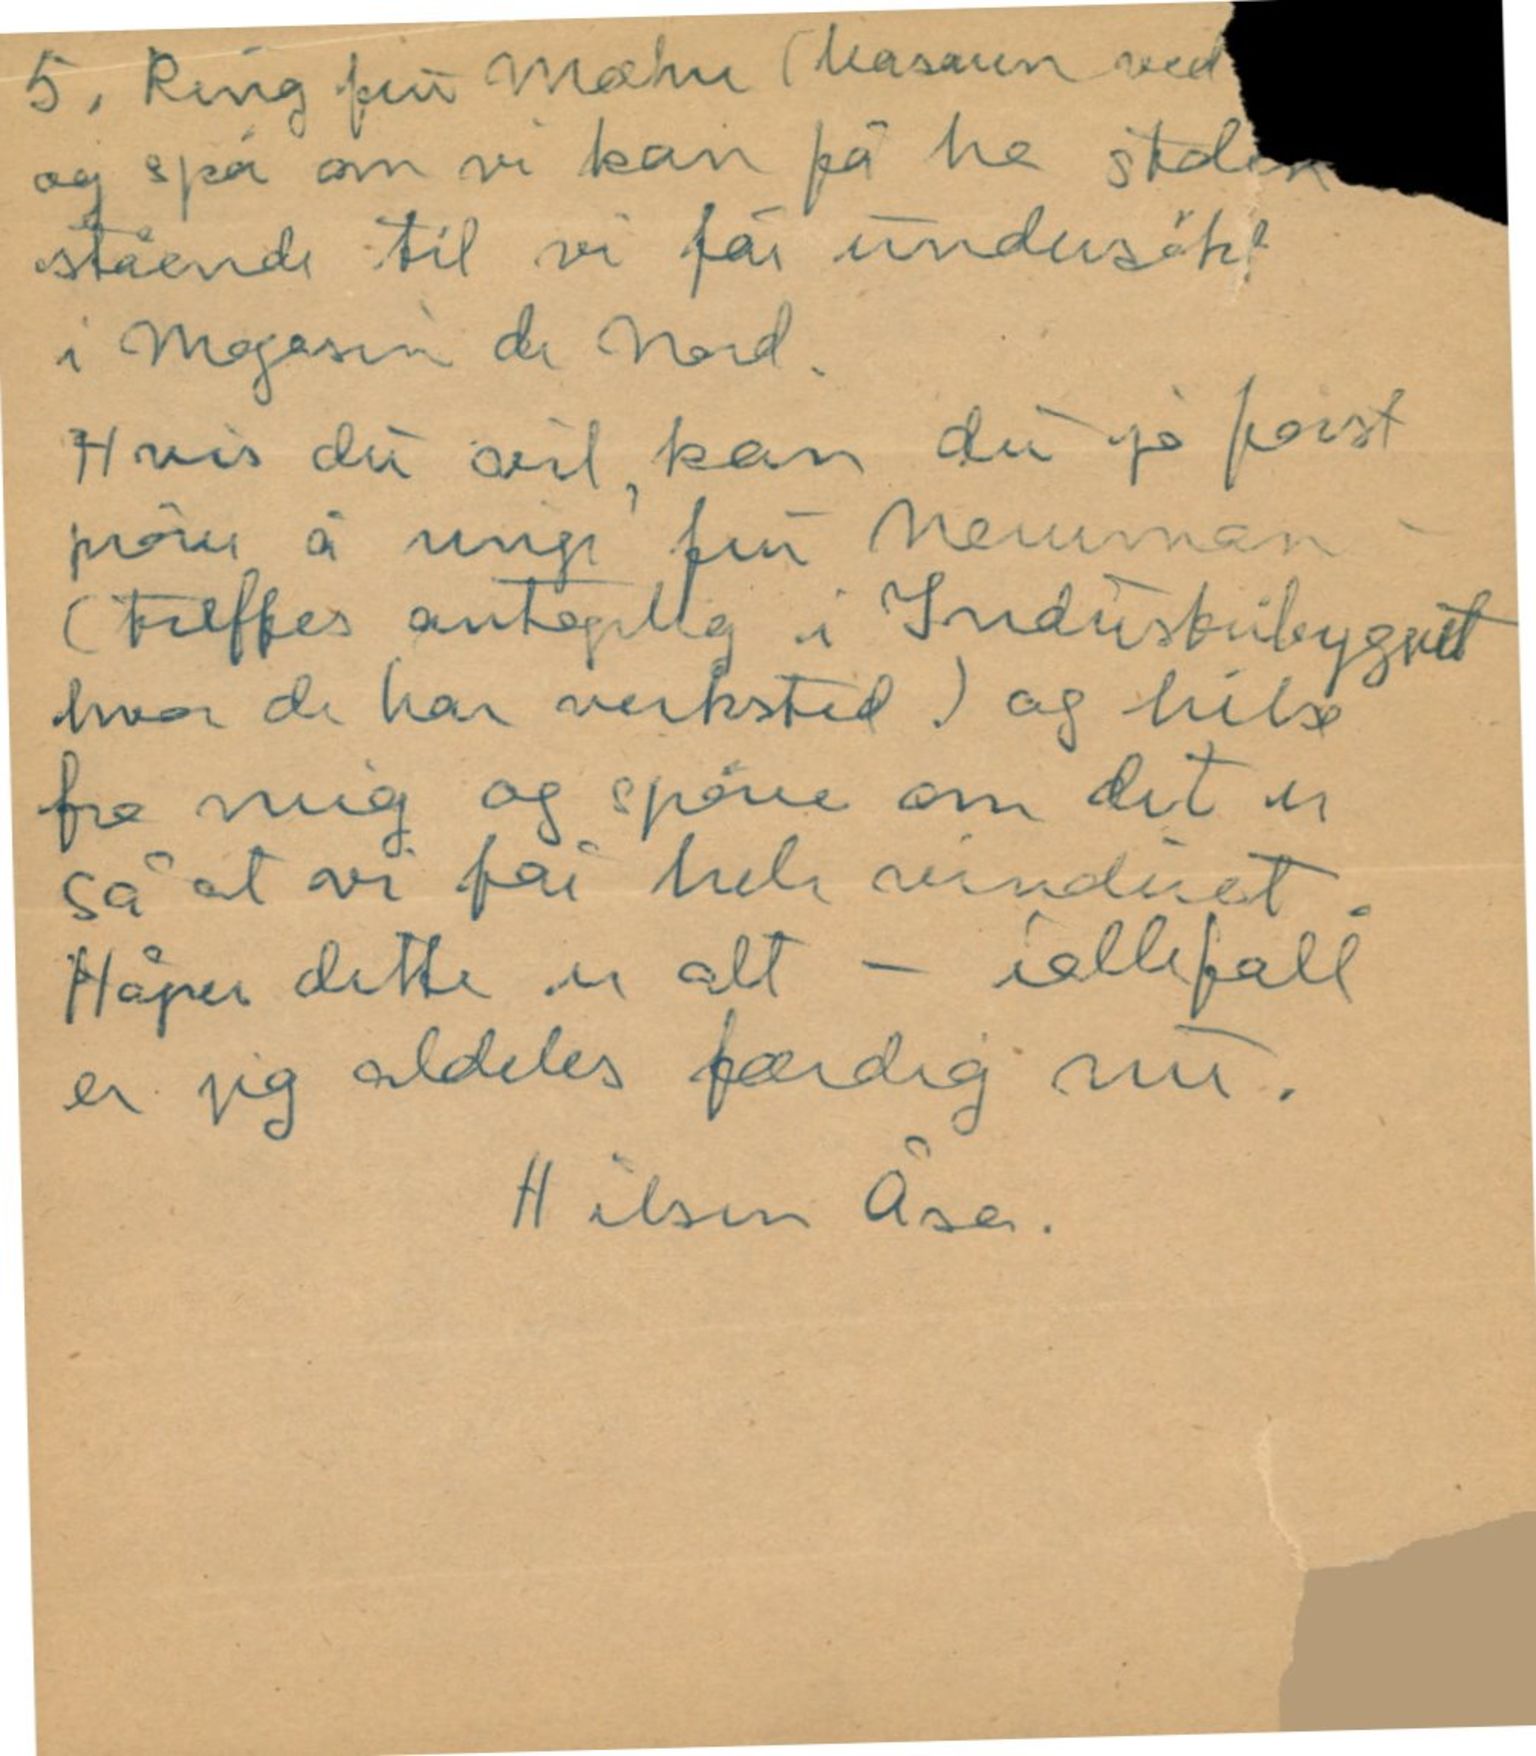 5. Ring fru Mæhre ( ved
og spø om vi kan få ha stolen
stående til vi får undersøkt
i Magasin du Nord.
Hvis du vil, kan du jo først
prøve å ringe fru Neuman
(treffes antagelig i Industribygget
hvor de har verksted) og hilse
fra meig og spørre om det er
så at vi får hele vinduet.
Håper dette er alt – iallefall
er jeg aldeles færdig nu.
Hilsen Åse.